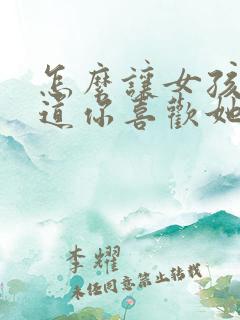 怎麼讓女孩
道你喜歡她
李耀
未经同意禁止转载